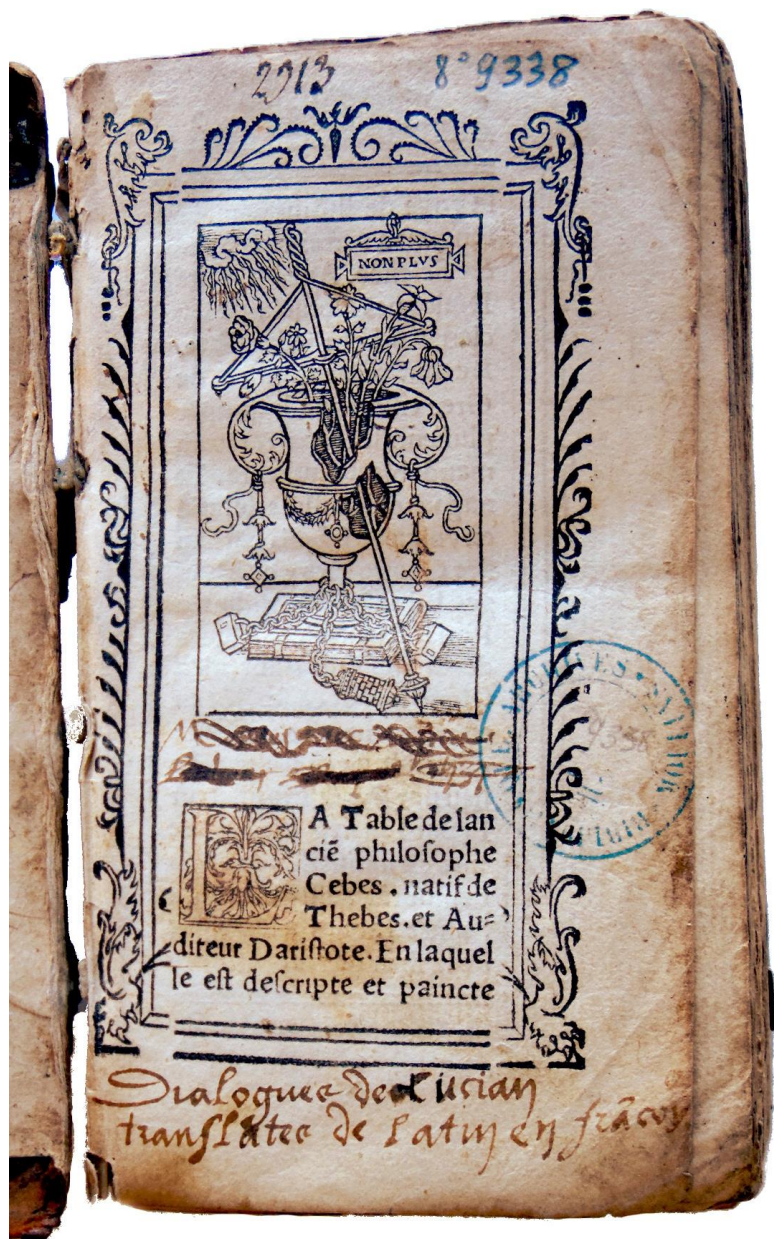 2913 8° 9338
NON PLVS
LA Table de lan
ciẽ philoſophe
Cebes . natif de
Thebes. et Au-
diteur Dariſtote. En laquel
le eſt deſcripte et paincte
ARCHIVES
9338
Dialogues de Lucian
tranſlates de latin en frãcoys